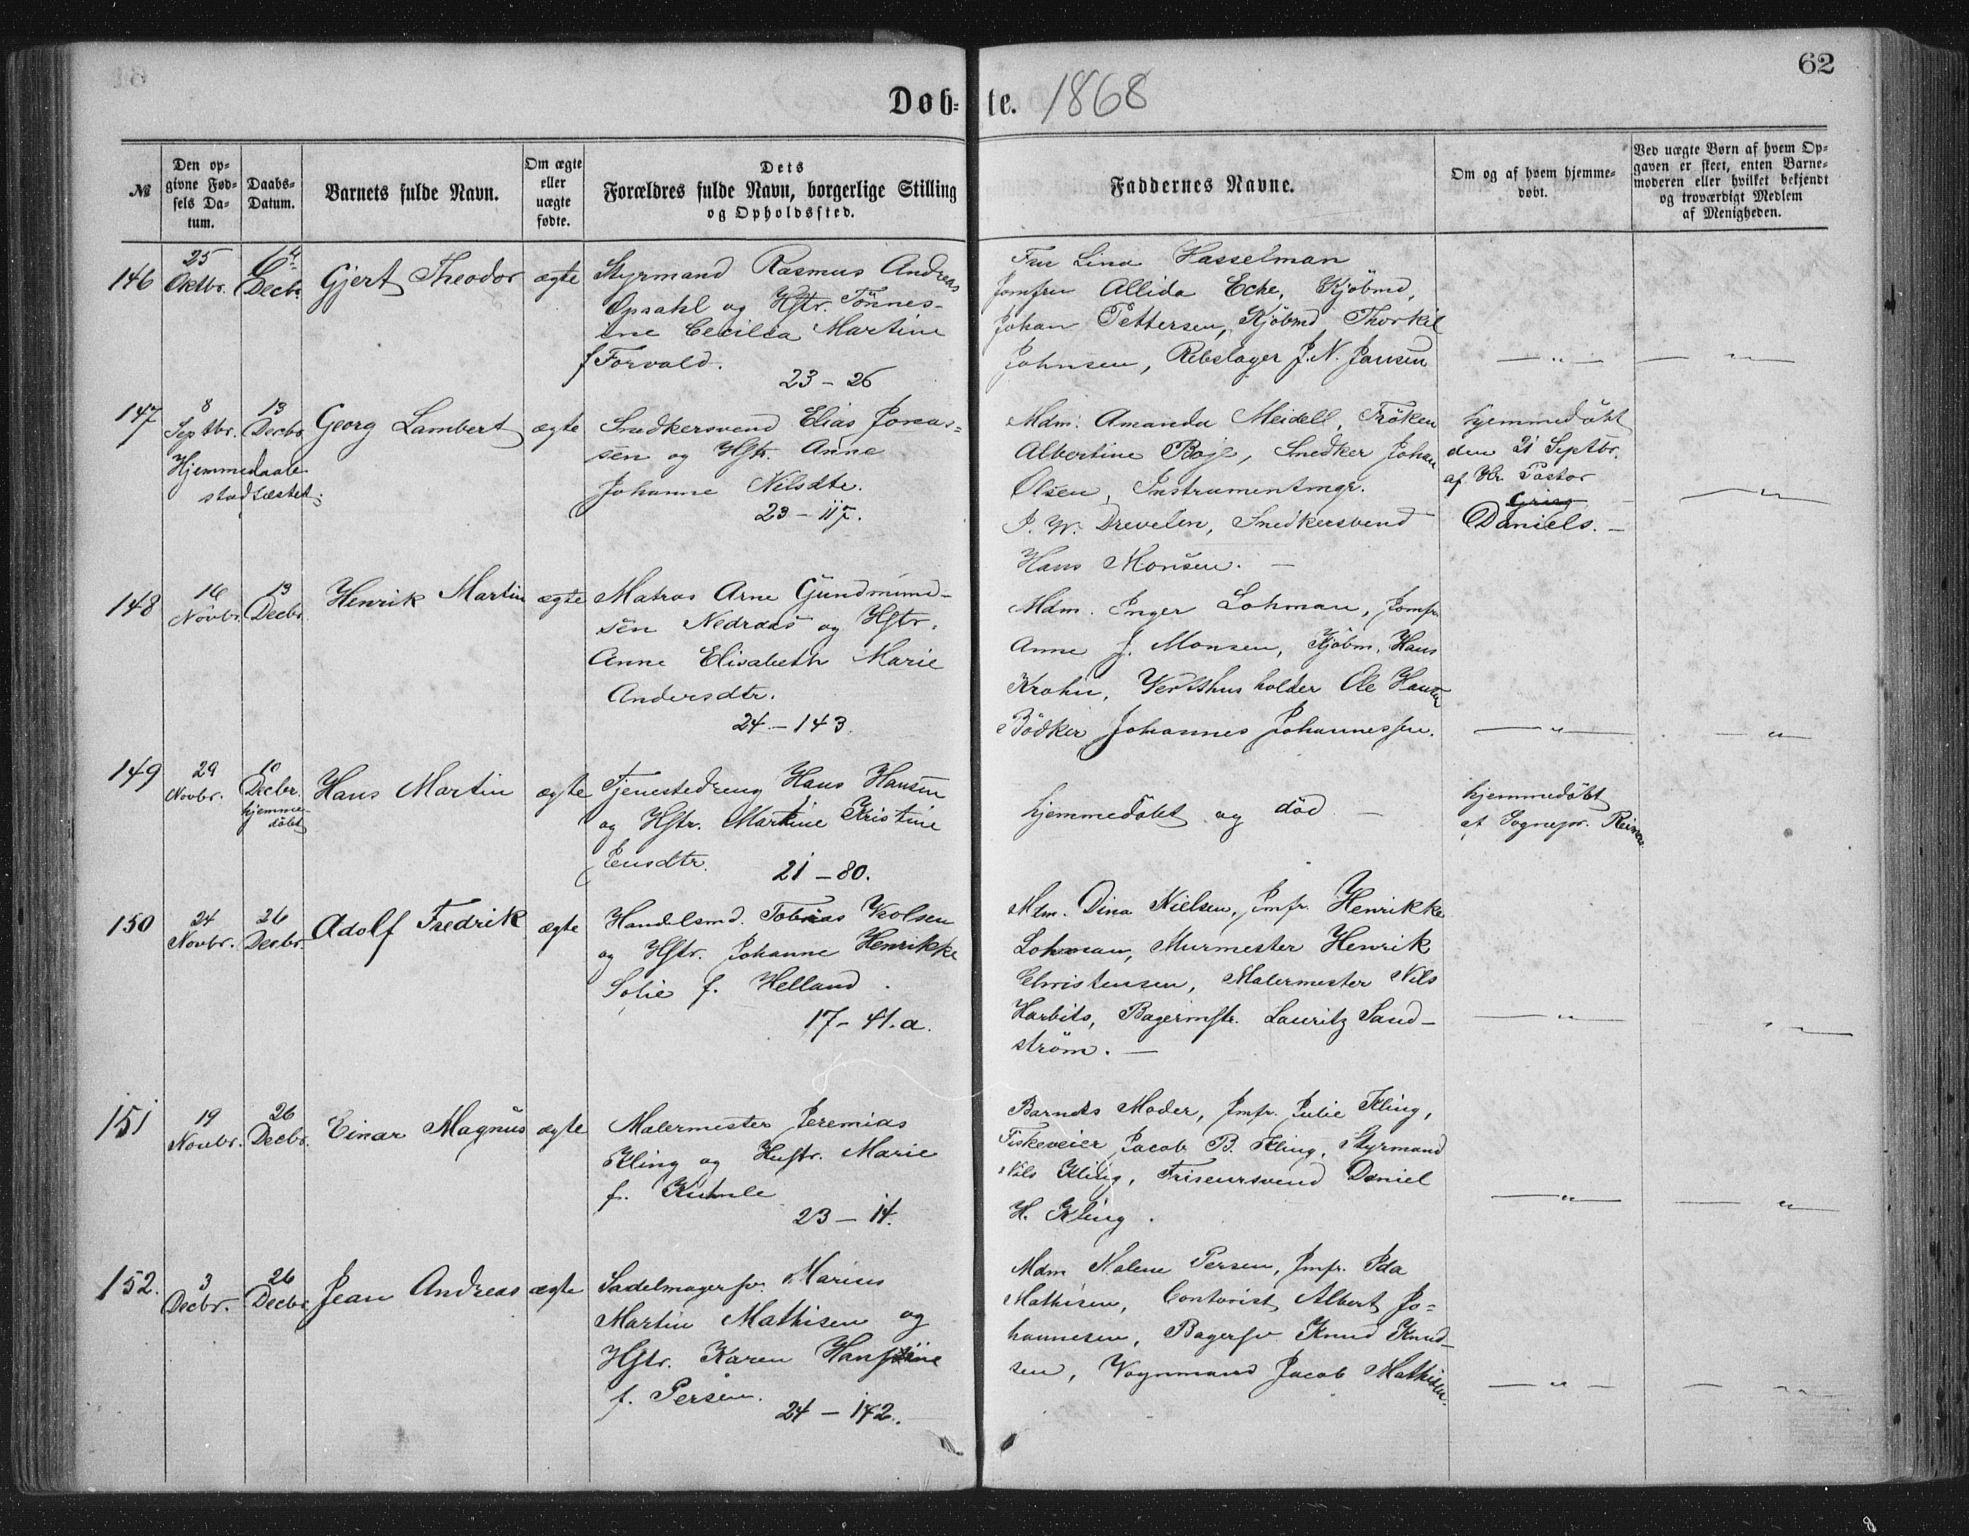 62
Døb- te. 1868
№
Den op-
givne Fød-
sels Da-
tum.
Daabs-
Datum.
Barnets fulde Navn.
Om ægte
eller
uægte
fødte.
Dets
Forældres fulde Navn, borgerlige Stilling
og Opholdssted.
Faddernes Navne.
Om og af hvem hjemme-
døbt.
Ved uægte Børn af hvem Op-
gaven er skeet, enten Barne-
moderen eller hvilket bekjendt
og troværdigt Medlem
af Menigheden.
146
25
Oktbr.
6te
Decbr.
Gjert Theodor
ægte
Styrmand Rasmus Andreas
Opsahl og Hstr. Tønnes-
ine Cecilia Martine
f Forvald.
23 – 26
Fru Lina Hasselman
Jomfru Allida Eche, Kjøbmd,
Johan Pettersen, Kjøbmd Thorkil
Johnsen, Rebslager J. N. Jansen
— „ —
— „ —
147
8
Septbr.
13
Decbr.
Hjemmedaab
stadfæstet.
Georg Lambert
ægte
Snedkersvend Elias Jonas-
sen og Hstr. Anne
Johanne Nilsdtr.
23 – 117.
Mdm. Amanda Meidell, Frøken
Albertine Boje, Snedker Johan
Olsen, Instrumentmgr.
J. W. Drevelen, Snedkersvend
Hans Monsen. —
hjemmedøbt
den 21 Septbr.
af Hr. Pastor
Grieg
Daniels. —
— „ —
148
16
Novbr.
13
Decbr.
Henrik Martin
ægte
Matros Arne Gundmund-
sen Nedraas og Hstr.
Anne Elisabeth Marie
Andersdtr.
24 – 143.
Mdm. Inger Lohman, Jomfr.
Anne J. Monsen, Kjøbm. Hans
Krohn, Vertshusholder Ole Hansen
Bødker Johannes Johannessen.
— „ —
— „ —
149
29
Novbr.
10
Decbr.
hjemme-
døbt
Hans Martin
ægte
Tjenestedreng Hans Hansen
og Hstr. Martine Kristine
Jensdtr.
21 – 80.
hjemmedøbt og død —
hjemmedøbt
af Sognepr. Reimers
150
24
Novbr.
26
Decbr.
Adolf Fredrik
ægte
Handelsmd. Tobias
og Hstr. Johanne Henrikke
Sofie f. Helland.
17 – 41. a.
Mdm. Dina Nielsen, Jmfr. Henrikke
Lohman, Murmester Henrik
Christensen, Malermester Nils
Harbits, Bagermstr. Lauritz Sand-
strøm. —
— „ —
— „ —
151
19
Novbr.
26
Decbr.
Einar Magnus
ægte
Malermester Jeremias
Kling og Hustr. Marie
f. Kuhnle
23 – 14.
Barnets Moder, Jmfr. Julie Kling,
Fiskeveier Jacob B. Kling, Styrmand
Nils Kling, Friseursvend Daniel
H. Kling.
— „ —
— „ —
152.
3
Decbr.
26
Decbr.
Jean Andreas
ægte
Sadelmagersv. Marius
Martin Mathisen og
Hstr. Karen Hansine
f. Persen.
24 – 142.
Mdm Malene Persen, Jmfr. Ida
Mathisen, Contorist Albert Jo-
hannesen, Bagersv Knud Knud-
sen, Vognmand Jacob Mathisen.
— „ —
— „ —